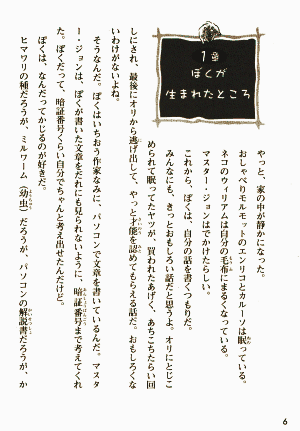 1章
ぼくが
生まれたところ
やっと、家の中が静かになった。
おしゃべりモルモットのエンリコとカルーソは眠っている。
ネコのウィリアムは自分の毛布にまるくなっている。
マスター・ジョンはでかけたらしい。
これから、ぼくは、自分の話を書くつもりだ。
みんなにも、きっとおもしろい話だと思うよ。オリにとじこ
められて眠ってたヤツが、買われたあげく、あちこちたらい回
しにされ、最後にオリから逃げ出して、やっと才能を認めてもらえる話だ。おもしろくな
いわけがないよね。
そうなんだ。ぼくはいちおう作家なみに、パソコンで文章を書いているんだ。マスタ
ー・ジョンは、ぼくが書いた文章をだれにも見られないように、暗証番号まで考えてくれ
た。ぼくだって、暗証番号くらい自分でちゃんと考え出せたんだけど。
ぼくは、なんだってかじるのが好きだ。
ヒマワリの種だろうが、ミルワーム（幼虫）だろうが、パソコンの解説書だろうが、か
6